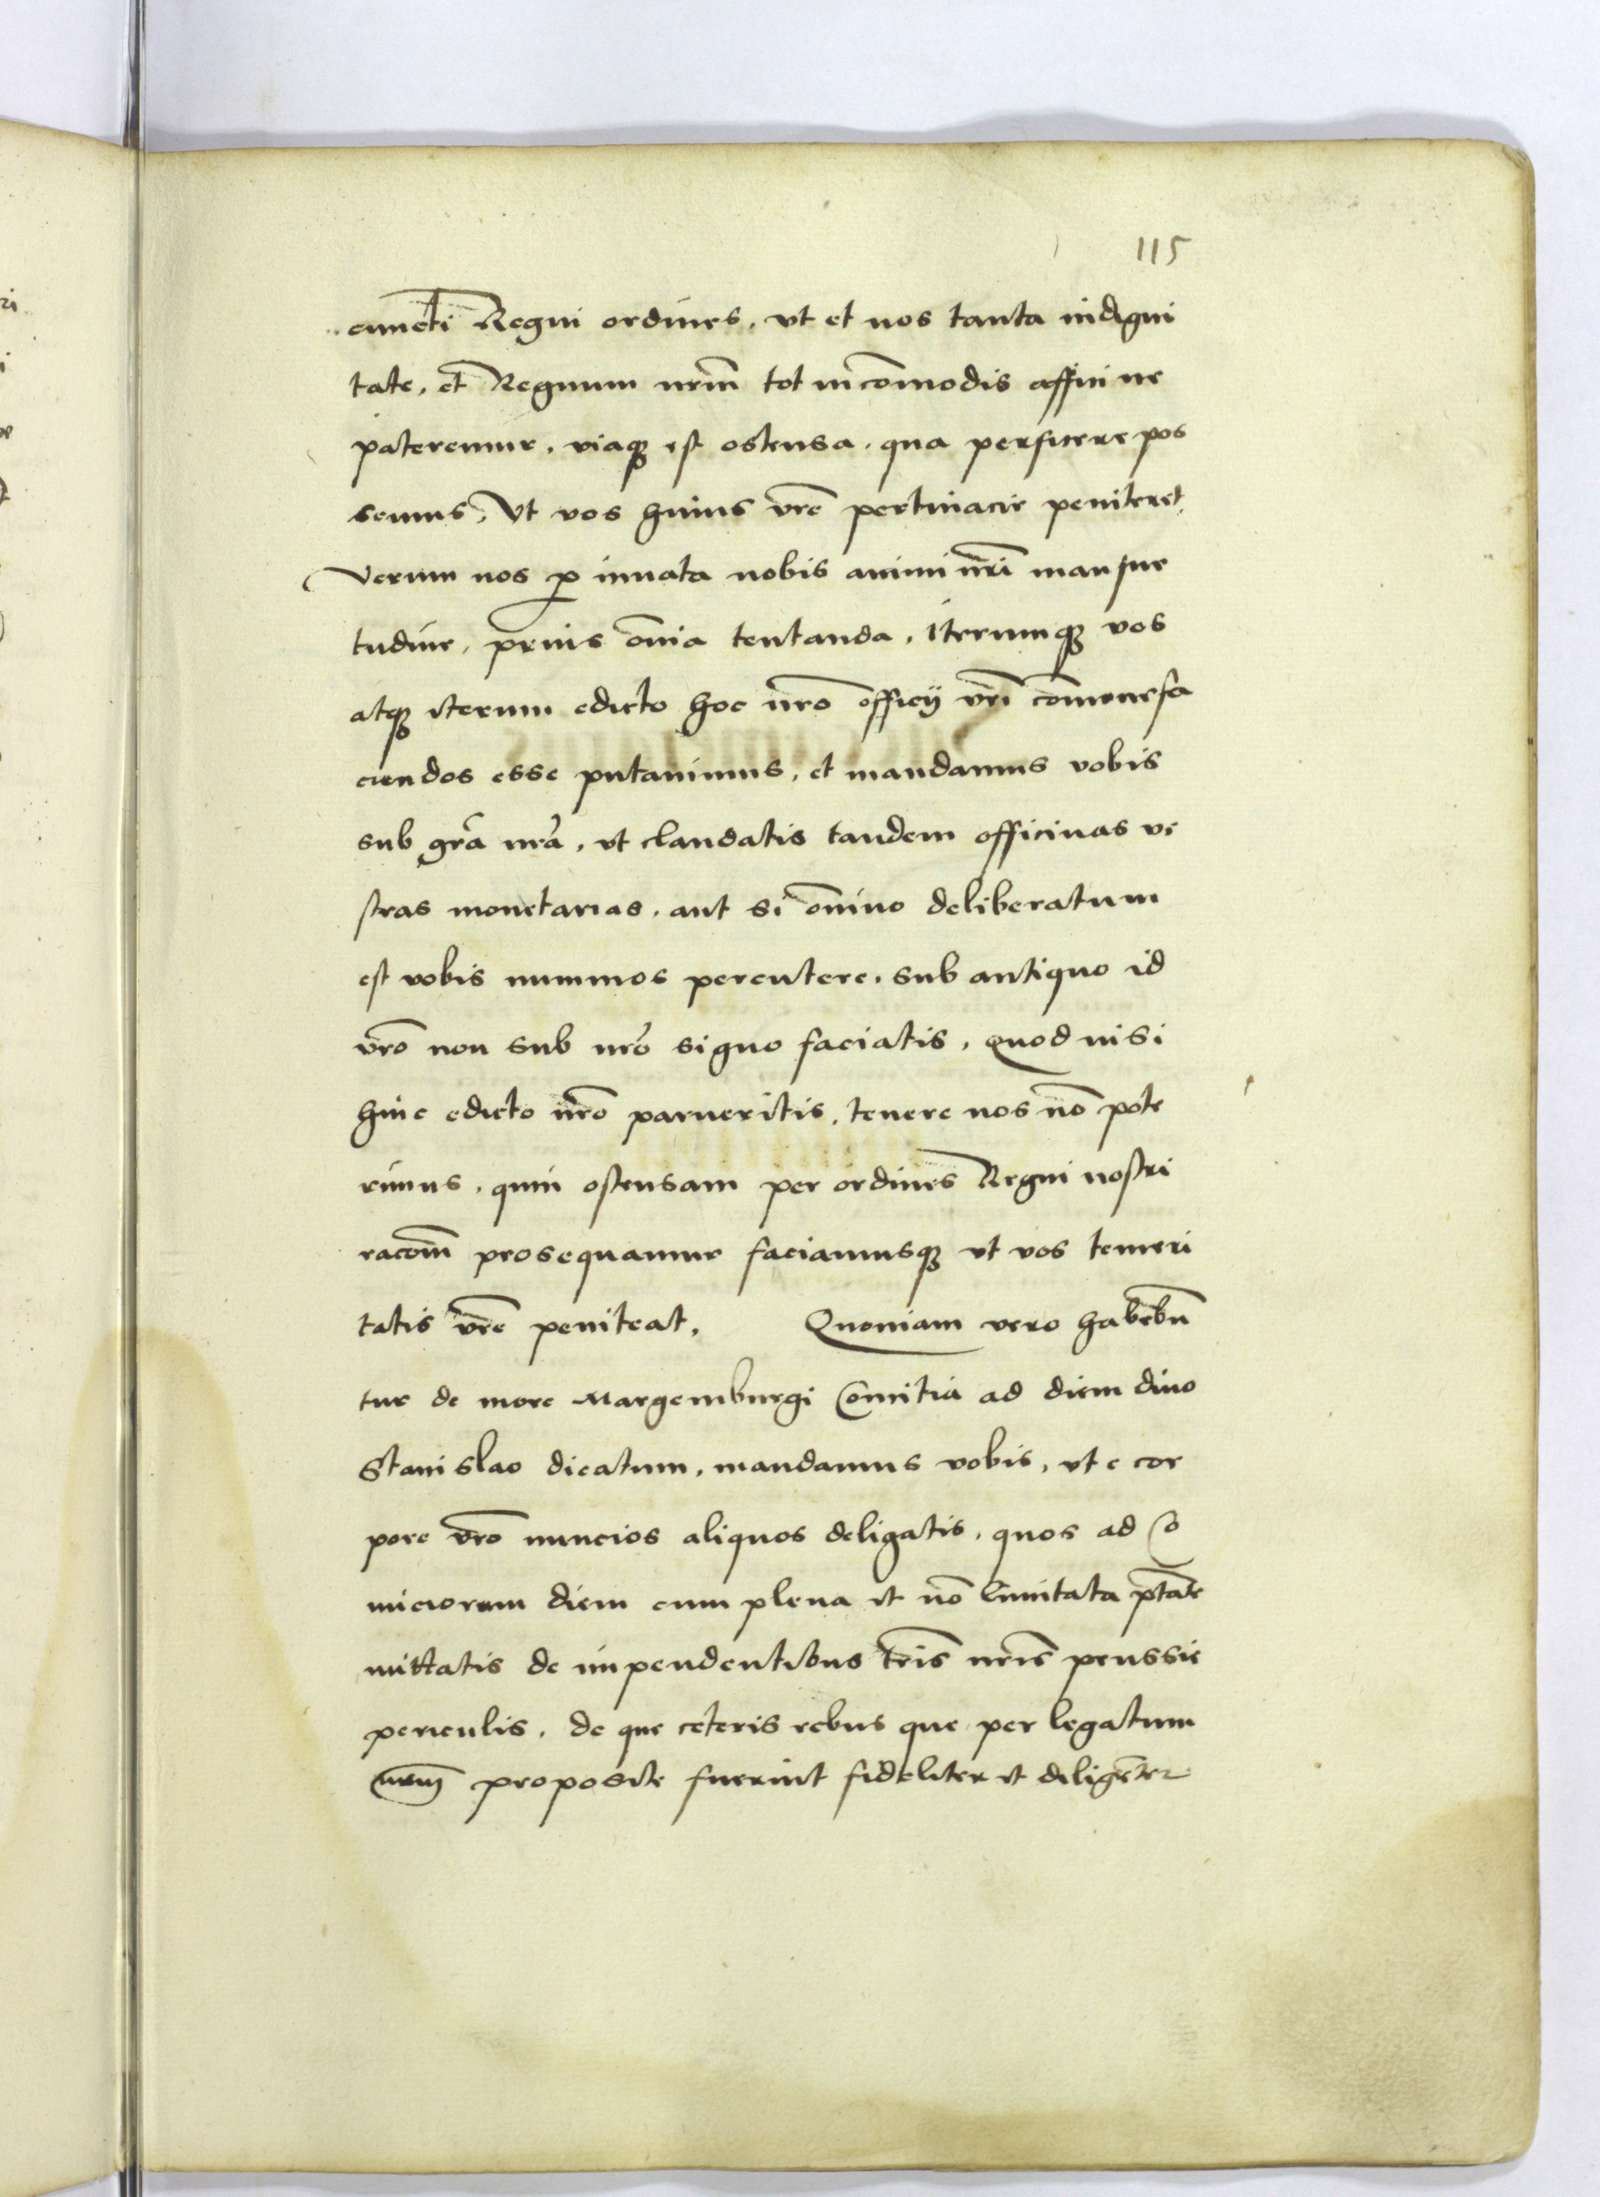 115
cuncti Regni ordines, ut et nos tanta indigni
tate, et Regnum nrm̄ tot incomodis affici ne
pateremur, viaqꝫ est ostensa, qua perficere pos
semus, Ut vos huius vr̄e pertinacie peniteret,
Verum nos ꝓ innata nobis animi nr̄i mansue
tudine, prius om̄ia tentanda, Iterumqꝫ vos
atqꝫ iterum edicto hoc nr̄o officij vr̄i com̄onefa
ciendos esse putavimus, et mandamus vobis
sub gr̄a nr̄a, ut claudatis tandem officinas ve
stras monetarias, aut si om̄ino deliberatum
est vobis nummos percutere, sub antiquo id
vr̄o non sub nr̄o signo faciatis, Quod nisi
huic edicto nr̄o parueritis, tenere nos nō pote
rimus, quin ostensam per ordines Regni nostri
racōm prosequamur faciamusqꝫ ut vos temeri
tatis vr̄e peniteat, Quoniam vero habebūn
tur de more Margemburgi Comitia ad diem divo
Stanislao dicatum, mandamus vobis, ut e cor
pore vr̄o nuncios aliquos deligatis, quos ad Co
miciorum diem cum plena et nō limitata ptāte
mittatis de impendentibus tr̄is nr̄is prussie
periculis, de que ceteris rebus que per legatum
nrm̄ proposite fuerint fideliter et diligēter